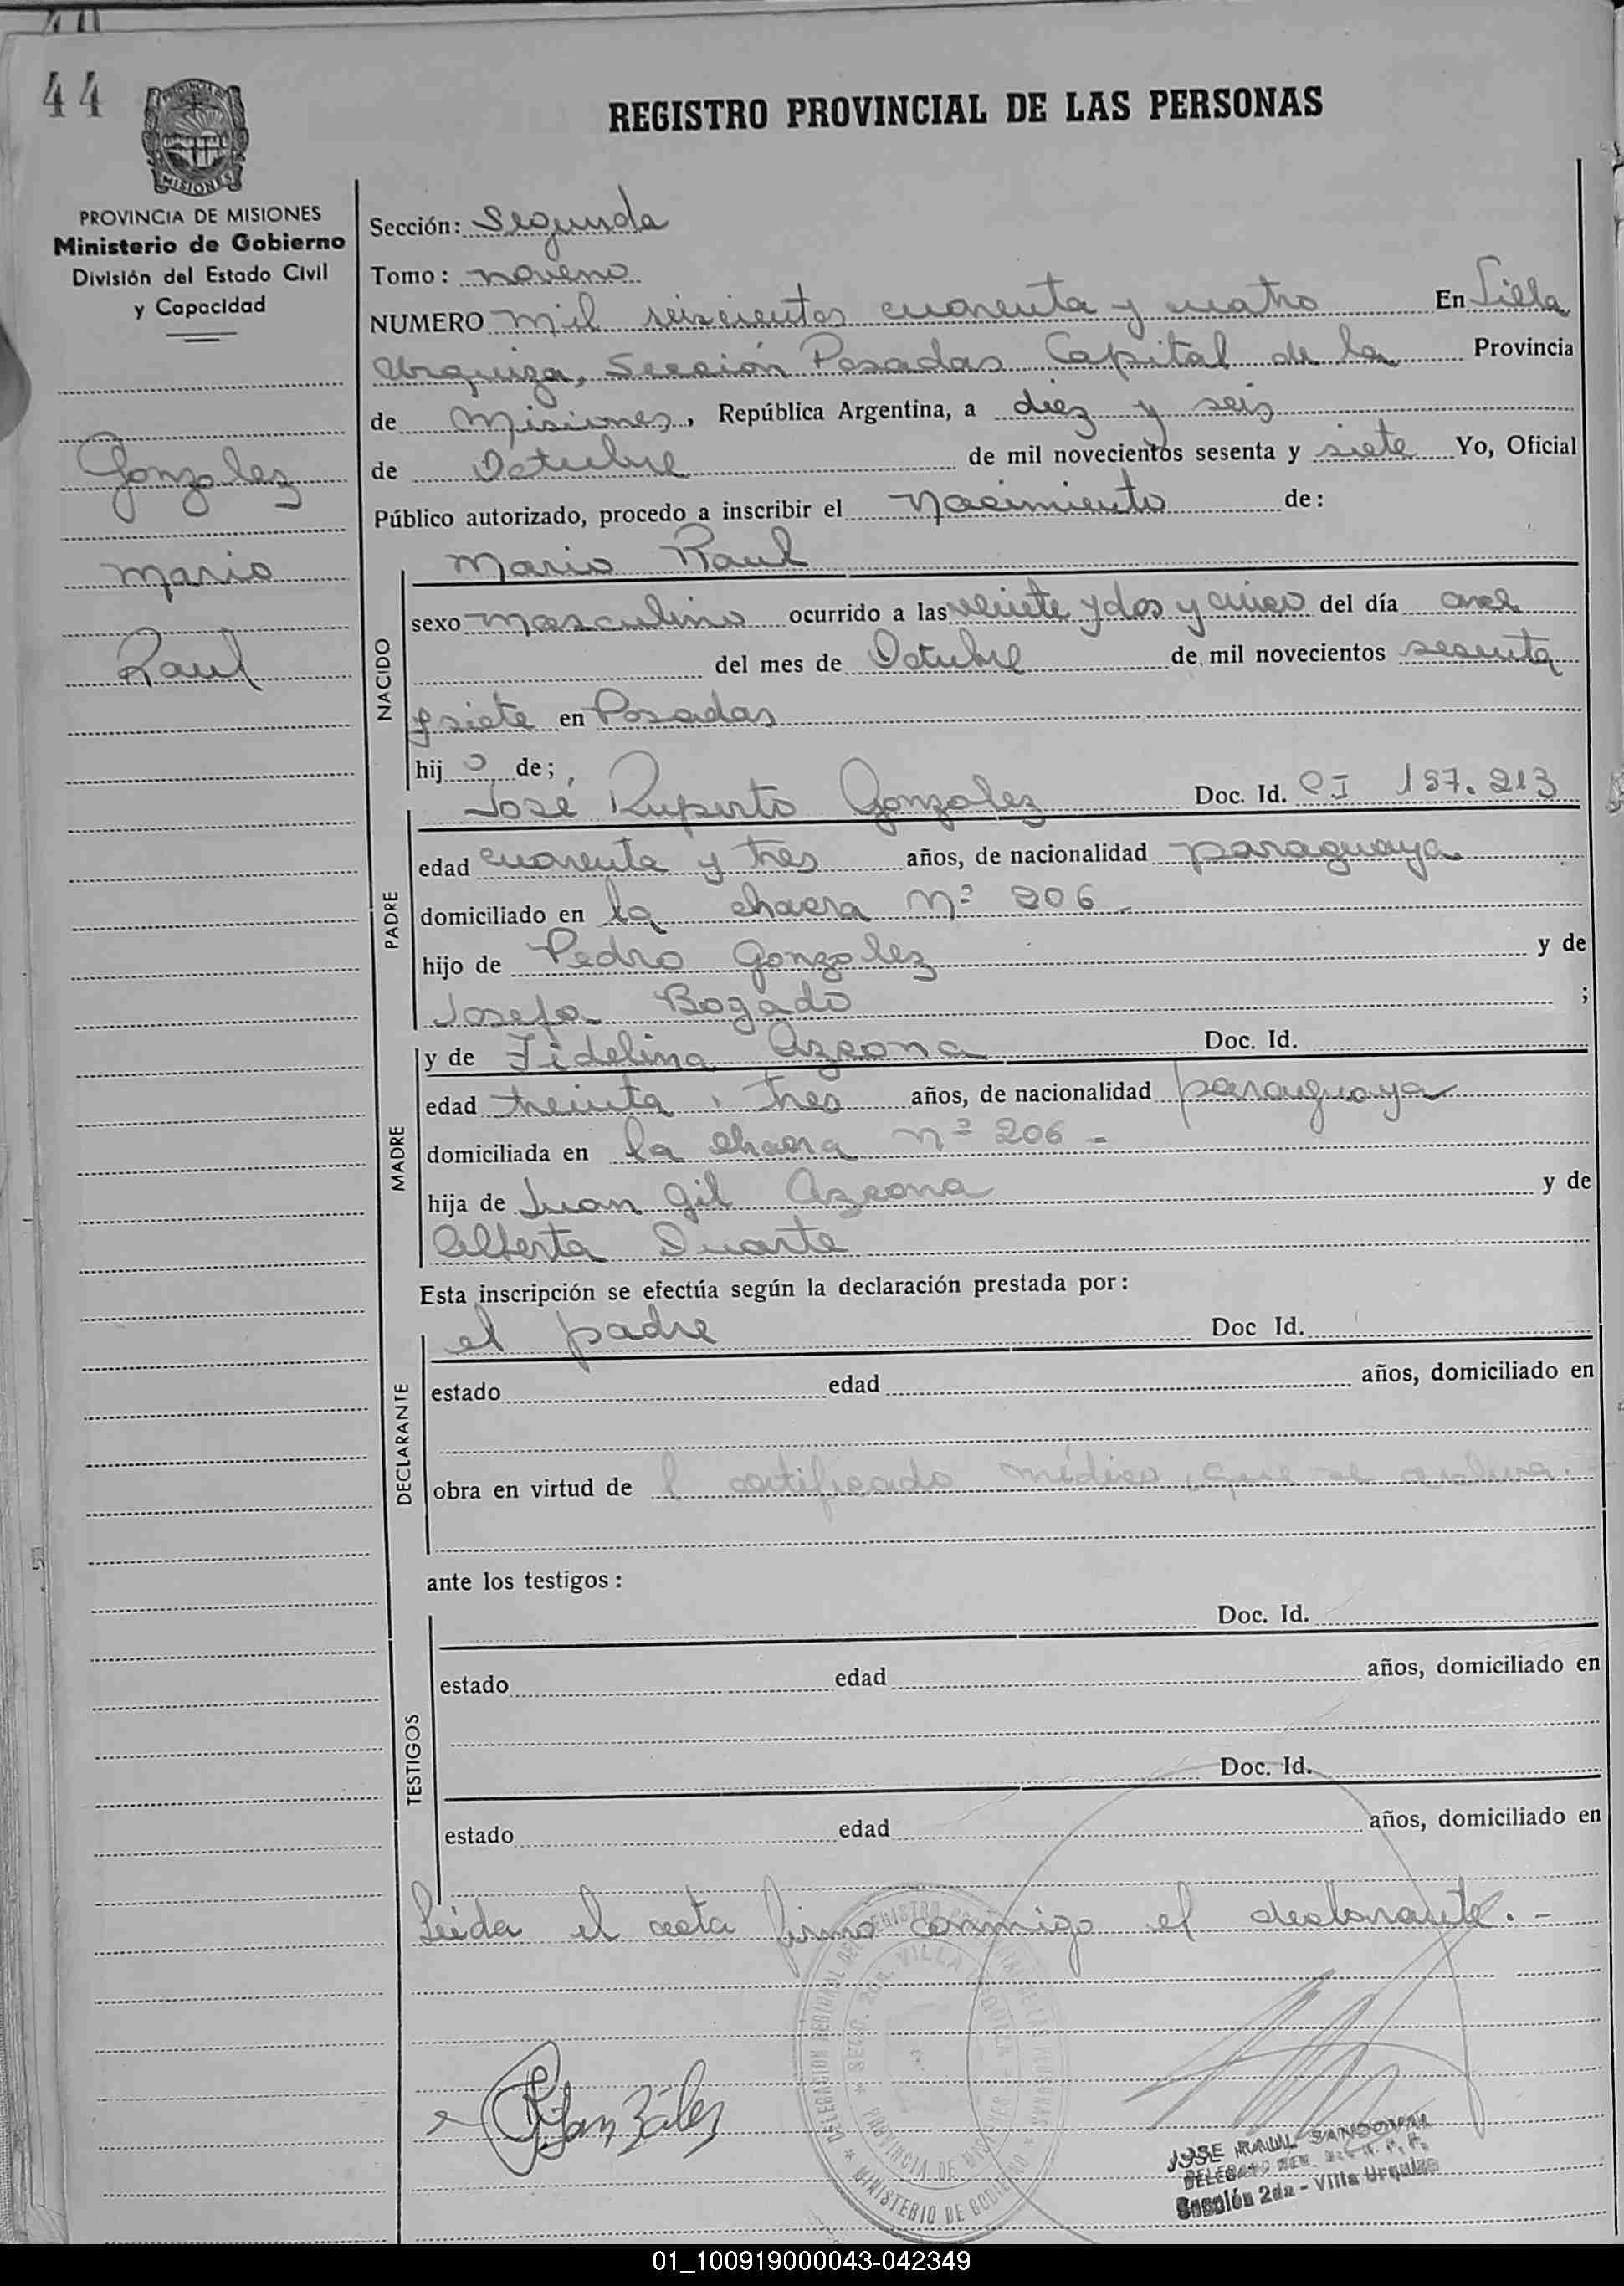 44
REGISTRO PROVINCIAL DE LAS PERSONAS
PROVINCIA DE MISIONES
Ministerio de Gobierno
División del Estado Civil
y Capacidad
Gonzalez
Mario
Raul
Sección: Segunda
Tomo: noveno
NUMERO mil seiscientos cuarenta y cuatro En Villa
Urquiza, Sección Posadas Capital de la Provincia
de Misiones, República Argentina, a diez y seis
de Octubre de mil novecientos sesenta y siete Yo, Oficial
Público autorizado, procedo a inscribir el Nacimiento de:
NACIDO
Mario Raul
sexo masculino ocurrido a las veinte y dos y cinco del día once
del mes de Octubre de mil novecientos sesenta
y siete en Posadas
hijo de;
PADRE
José Ruperto Gonzalez Doc. Id. CI 187.213
edad cuarenta y tres años, de nacionalidad paraguaya
domiciliado en la chacra Nº 206
hijo de Pedro Gonzalez y de
Josefa Bogado ;
MADRE
y de Fidelina Azcona Doc. Id.
edad treinta y tres años, de nacionalidad paraguaya
domiciliada en la chacra nº 206 -
hija de Juan Gil Azcona y de
Alberta Duarte
Esta inscripción se efectúa según la declaración prestada por:
DECLARANTE
el padre Doc Id.
estado edad años, domiciliado en
obra en virtud de l certificado médico, que se archiva.
ante los testigos:
TESTIGOS
Doc. Id.
estado edad años, domiciliado en
Doc. Id.
estado edad años, domiciliado en
Leida el acta firma conmigo el declarante. -
DELEGACION REGIONAL DEL REGISTRO PROVINCIAL DE LAS PERSONAS
SECC. 2da. VILLA URQUIZA
PROVINCIA DE MISIONES
MINISTERIO DE GOBIERNO
JOSE RAUL SANDOVAL
DELEGADO
Sección 2da - Villa Urquiza
01_100919000043-042349